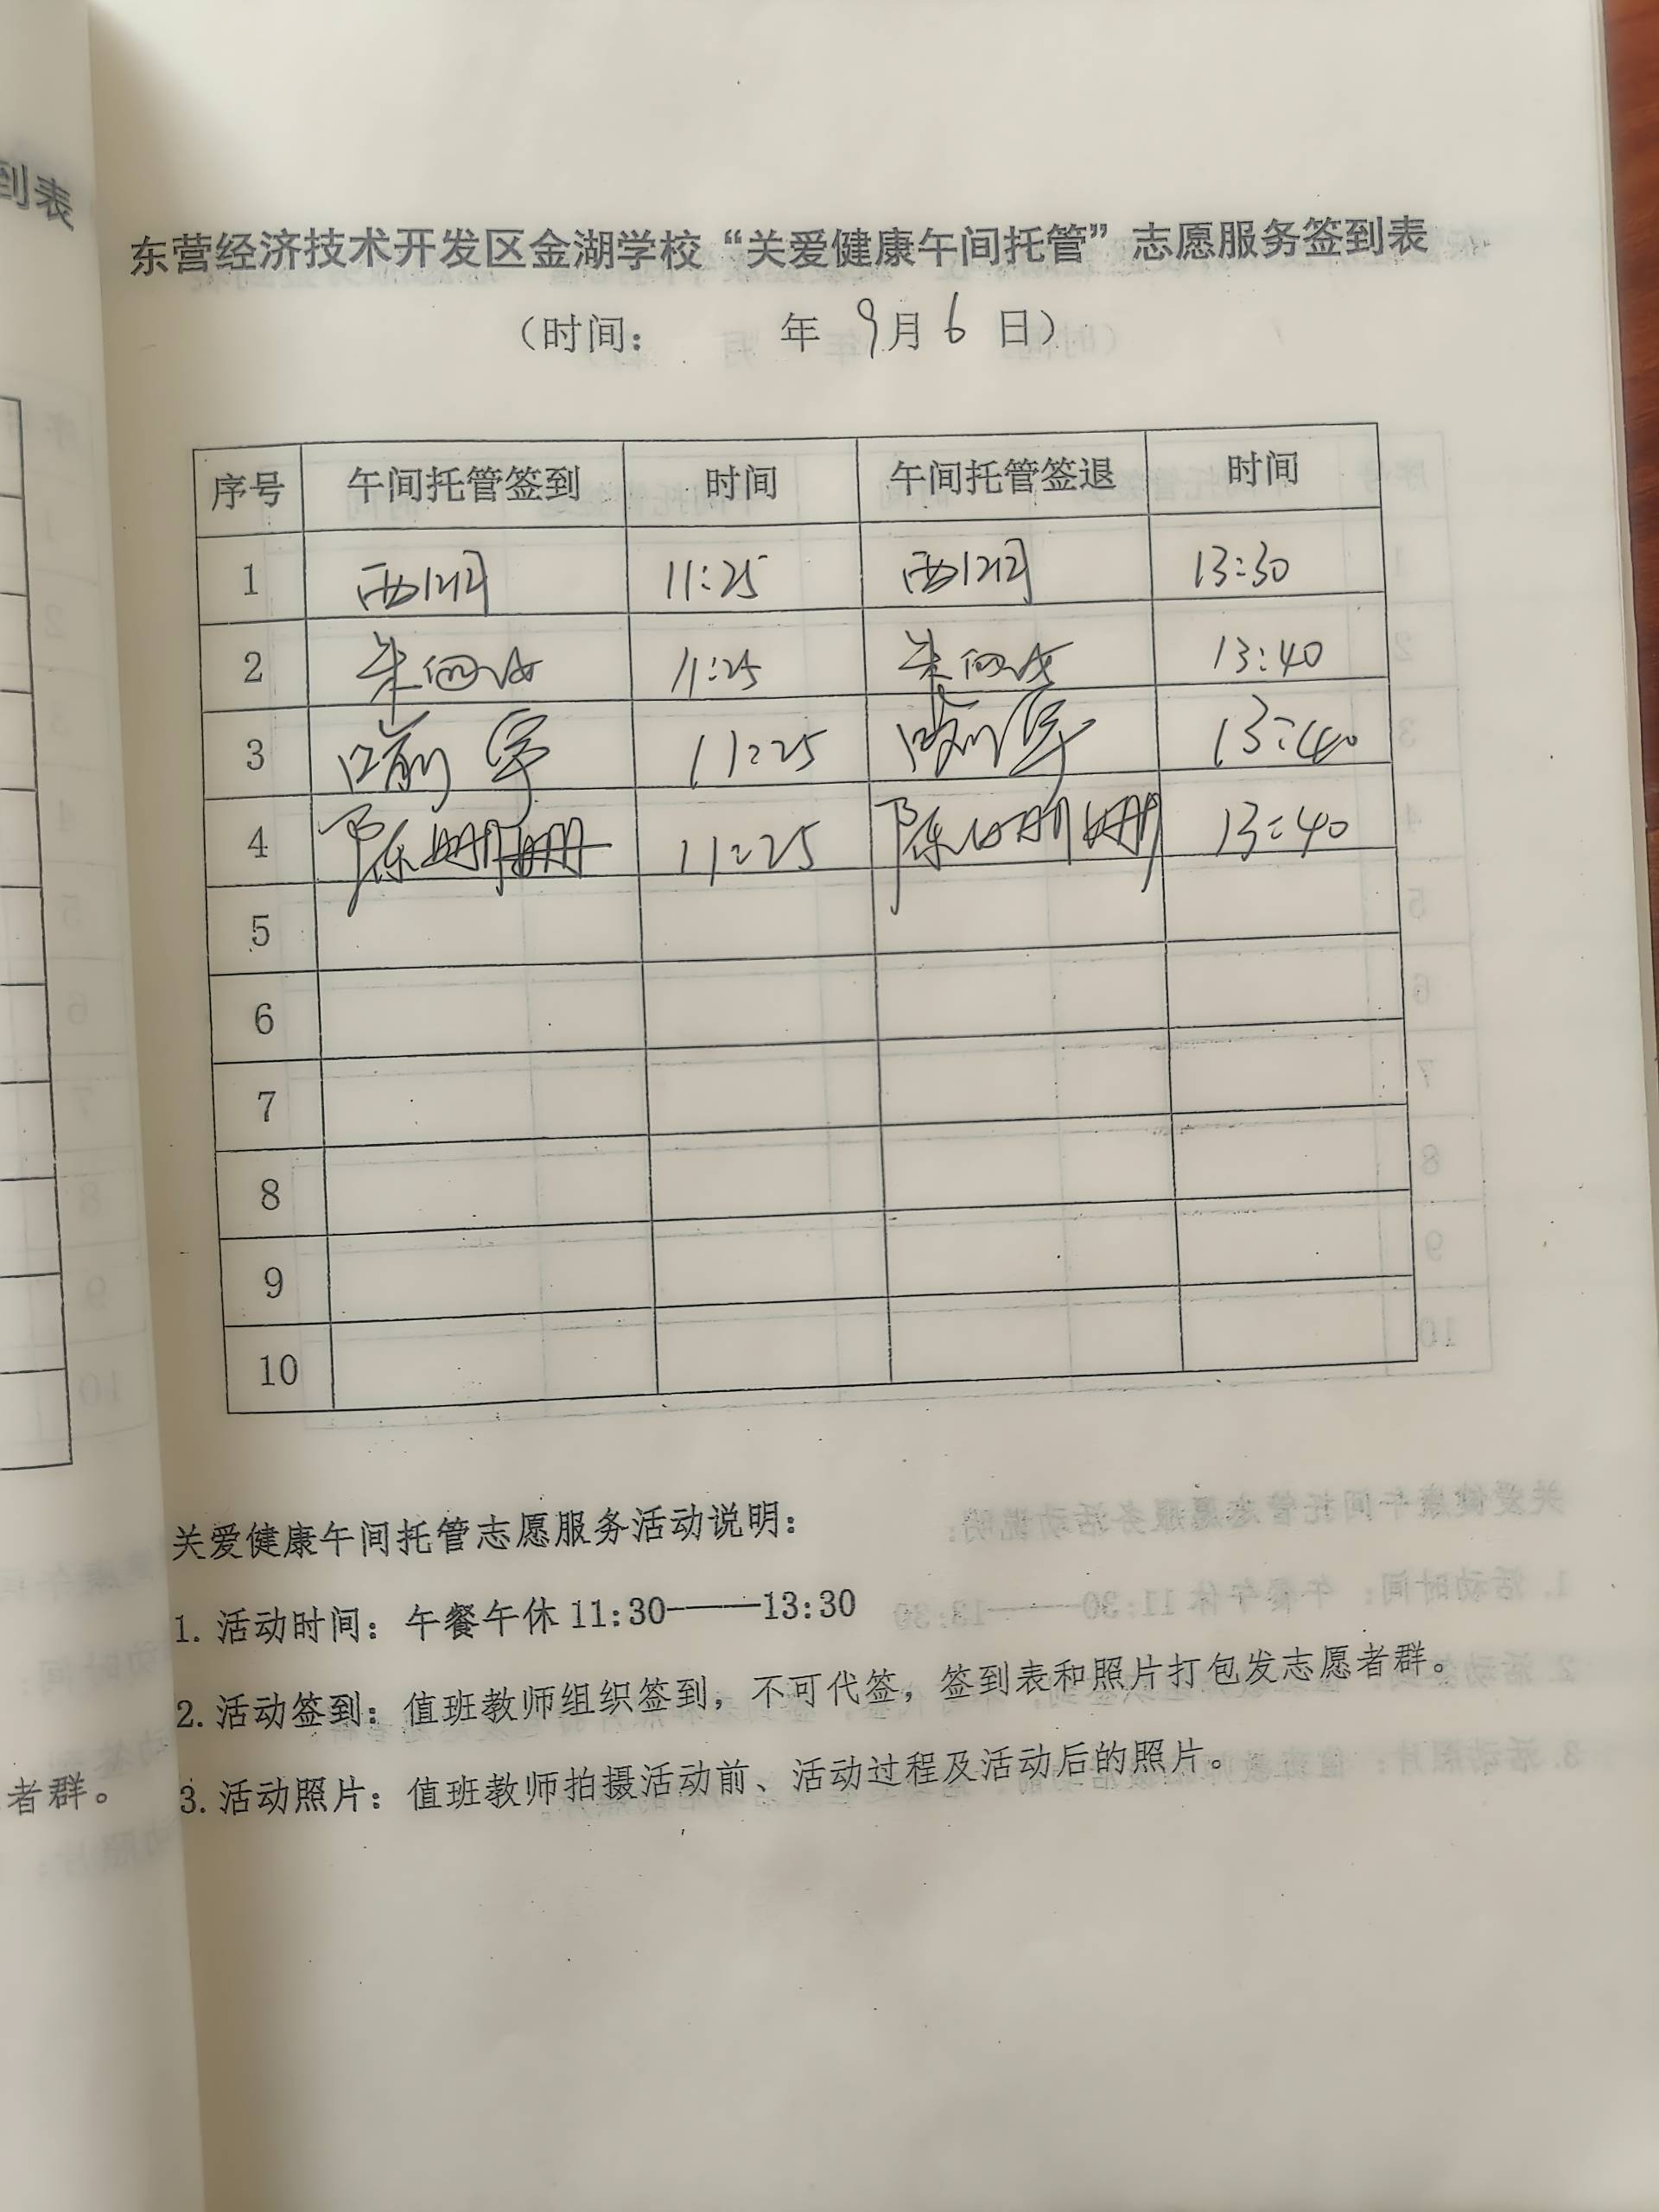 到表
东营经济技术开发区金湖学校“关爱健康午间托管”志愿服务签到表
（时间： 年 9月 6 日）
序号 午间托管签到 时间 午间托管签退 时间
1 11:25 13:30
2 朱 11:25 朱 13:40
3 11:25 13:40
4 陈姗姗 11:25 陈姗姗 13:40
5
6
7
8
9
10
关爱健康午间托管志愿服务活动说明：
1. 活动时间：午餐午休 11:30———13:30
2. 活动签到：值班教师组织签到，不可代签，签到表和照片打包发志愿者群。
3. 活动照片：值班教师拍摄活动前、活动过程及活动后的照片。
者群。